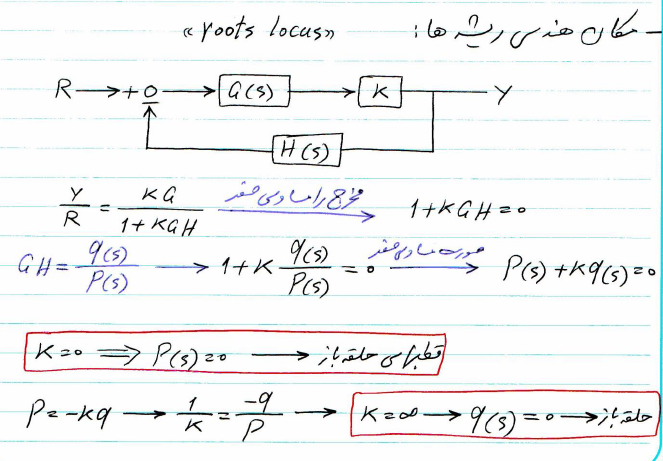 - مکان هندسی ریشه ها: «roots locus»
R → + o → G(s) → K → Y
H(s)
Y/R = KG/(1+KGH) مخرج را مساوی صفر → 1+KGH=0
GH = q(s)/P(s) → 1+K q(s)/P(s) = 0 صورت مساوی صفر → P(s)+Kq(s)=0
K=0 ⟹ P(s)=0 → قطبهای حلقه باز
P=-kq → 1/K = -q/P → K=∞ → q(s)=0 → حلقه باز